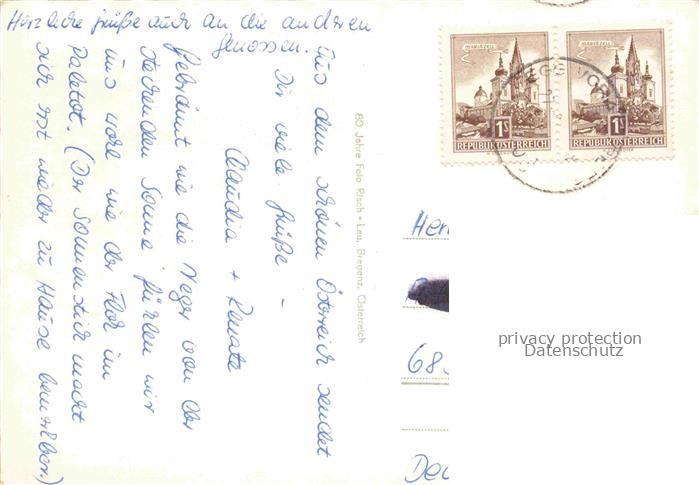 Herzliche Grüße auch an die anderen
Genossen.
Aus dem schönen Österreich sendet
Dir viele Grüße -
Claudia + Renate
Gebräunt wie die Neger von der
stechenden Sonne fühlen wir
uns wohl wie der Floh im
Paletot. (Der Sonnenstich macht
sich erst wieder zu Hause bemerkbar.)
80 Jahre Foto Risch • Lau, Bregenz, Österreich
MARIAZELL
1S
REPUBLIK ÖSTERREICH
MARIAZELL
1S
REPUBLIK ÖSTERREICH
Her
privacy protection
Datenschutz
68